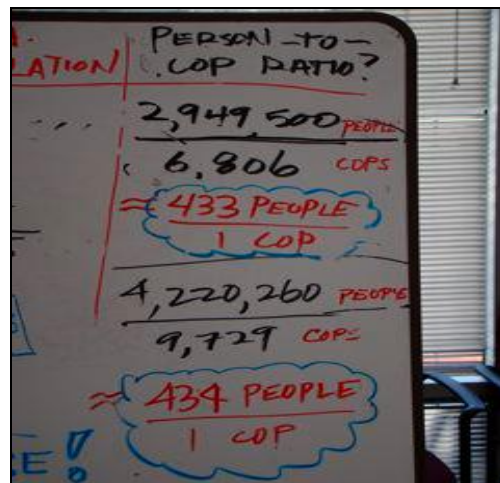 LATION
PERSON-TO-
COP RATIO?
2,949,500 PEOPLE
6,806 COPS
≈ 433 PEOPLE
1 COP
4,220,260 PEOPLE
9,729 COPS
≈ 434 PEOPLE
1 COP
E!